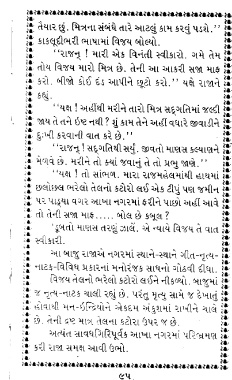 તૈયાર છું. મિત્રના સંબંધે તારે આટલું કામ કરવું પડશે.''
કાકલુદીભરી ભાષામાં વિજય બોલ્યો.
''રાજન્ ! મારી એક વિનંતી સ્વીકારો. ગમે તેમ
તોય વિજય મારો મિત્ર છે. તેની આ આકરી સજા માફ
કરો. બીજો કોઈ દંડ આપીને છૂટો કરો.'' યક્ષે રાજાને
કહ્યું.
''યક્ષ ! અહીંથી મરીને તારો મિત્ર સદ્ગતિમાં જલ્દી
જાય તે તને ઇષ્ટ નથી ? શું કામ તેને અહીં વધારે જીવાડીને
દુઃખી કરવાની વાત કરે છે.''
''રાજન્ ! સદ્ગતિથી સર્યુ. જીવતો માણસ કલ્યાણને
મેળવે છે. મરીને તો ક્યાં જવાનું તે તો પ્રભુ જાણે.''
''યક્ષ ! તો સાંભળ. મારા રાજમહેલમાંથી હાથમાં
છલોછલ ભરેલો તેલનો કટોરો લઈ એક ટીપું પણ જમીન
પર પાડ્યા વગર આખા નગરમાં ફરીને પાછો અહીં આવે
તો તેની સજા માફ..... બોલ છે કબુલ ?
ડૂબતો માણસ તરણું ઝાલે. એ ન્યાયે વિજયે તે વાત
સ્વીકારી.
આ બાજુ રાજાએ નગરમાં સ્થાને-સ્થાને ગીત-નૃત્ય-
નાટક-વિવિધ પ્રકારનાં મનોરંજક સાધનો ગોઠવી દીધા.
વિજય તેલનો ભરેલો કટોરો લઈને નીકળ્યો. બાજુમાં
જ નૃત્ય-નાટક ચાલી રહ્યું છે. પરંતુ મૃત્યુ સામે જ દેખાતું
હોવાથી મન-ઈન્દ્રિયોને એકદમ અંકુશમાં રાખીને ચાલે
છે. તેની દૃષ્ટિ માત્ર તેલના કટોરા ઉપર જ છે.
અત્યંત સાવધગિરિપૂર્વક આખા નગરમાં પરિભ્રમણ
કરી રાજા સમક્ષ આવી ઉભો.
૯૫